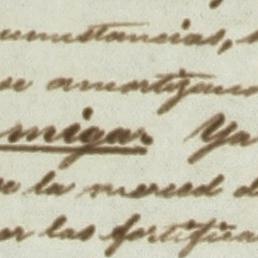 cunstancias,
se amortizan
miga. Ya
se la merced d
er las fortifica